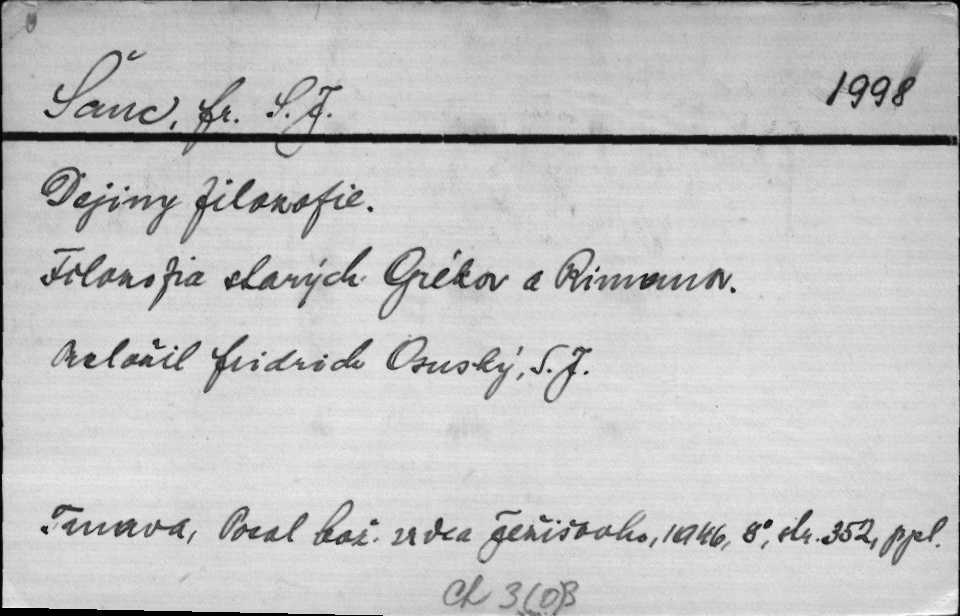 Šanc, fr. S.J.
1998
Dejiny filozofie.
Filozofia starých Grékov a Rimanov.
Preložil Fridrich Osuský, S.J.
Trnava, Posol bož. srdca Ježišovho, 1946, 8°, str. 352, ppl.
Ch 3(0)B